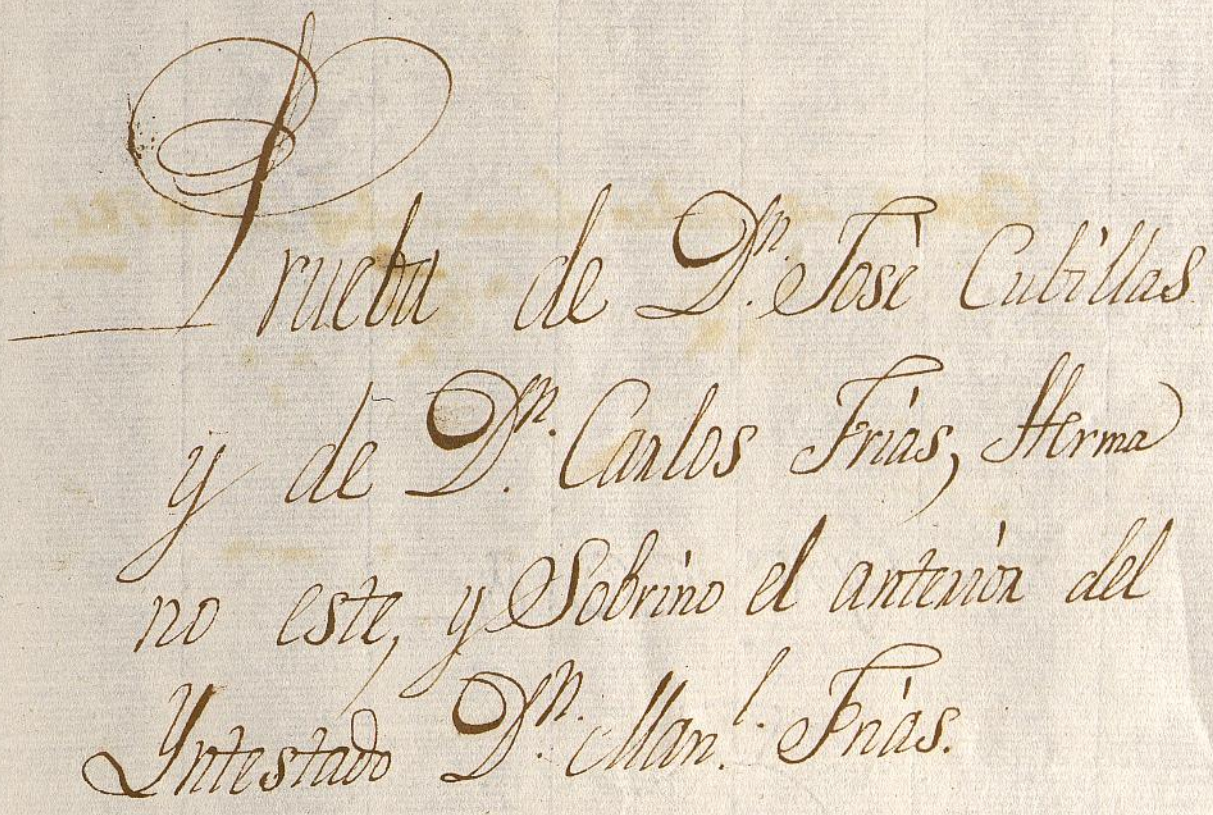 Prueba de Dn. José Cubillas
y de Dn. Carlos Frias, Herma
no este, y Sobrino el anterior del
Yntestado Dn. Manl. Frias.